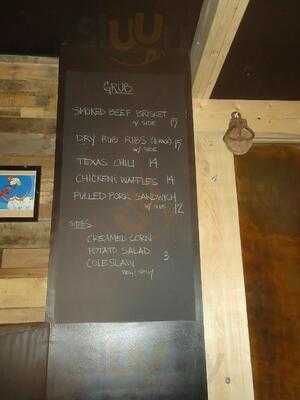 GRUB
SMOKED BEEF BRISKET
W/ SIDE 15
DRY RUB RIBS 15
W/ SIDE
TEXAS CHILI 14
CHICKEN & WAFFLES 14
PULLED PORK SANDWICH
W/ SIDE 12
SIDES:
CREAMED CORN
POTATO SALAD 3
COLESLAW